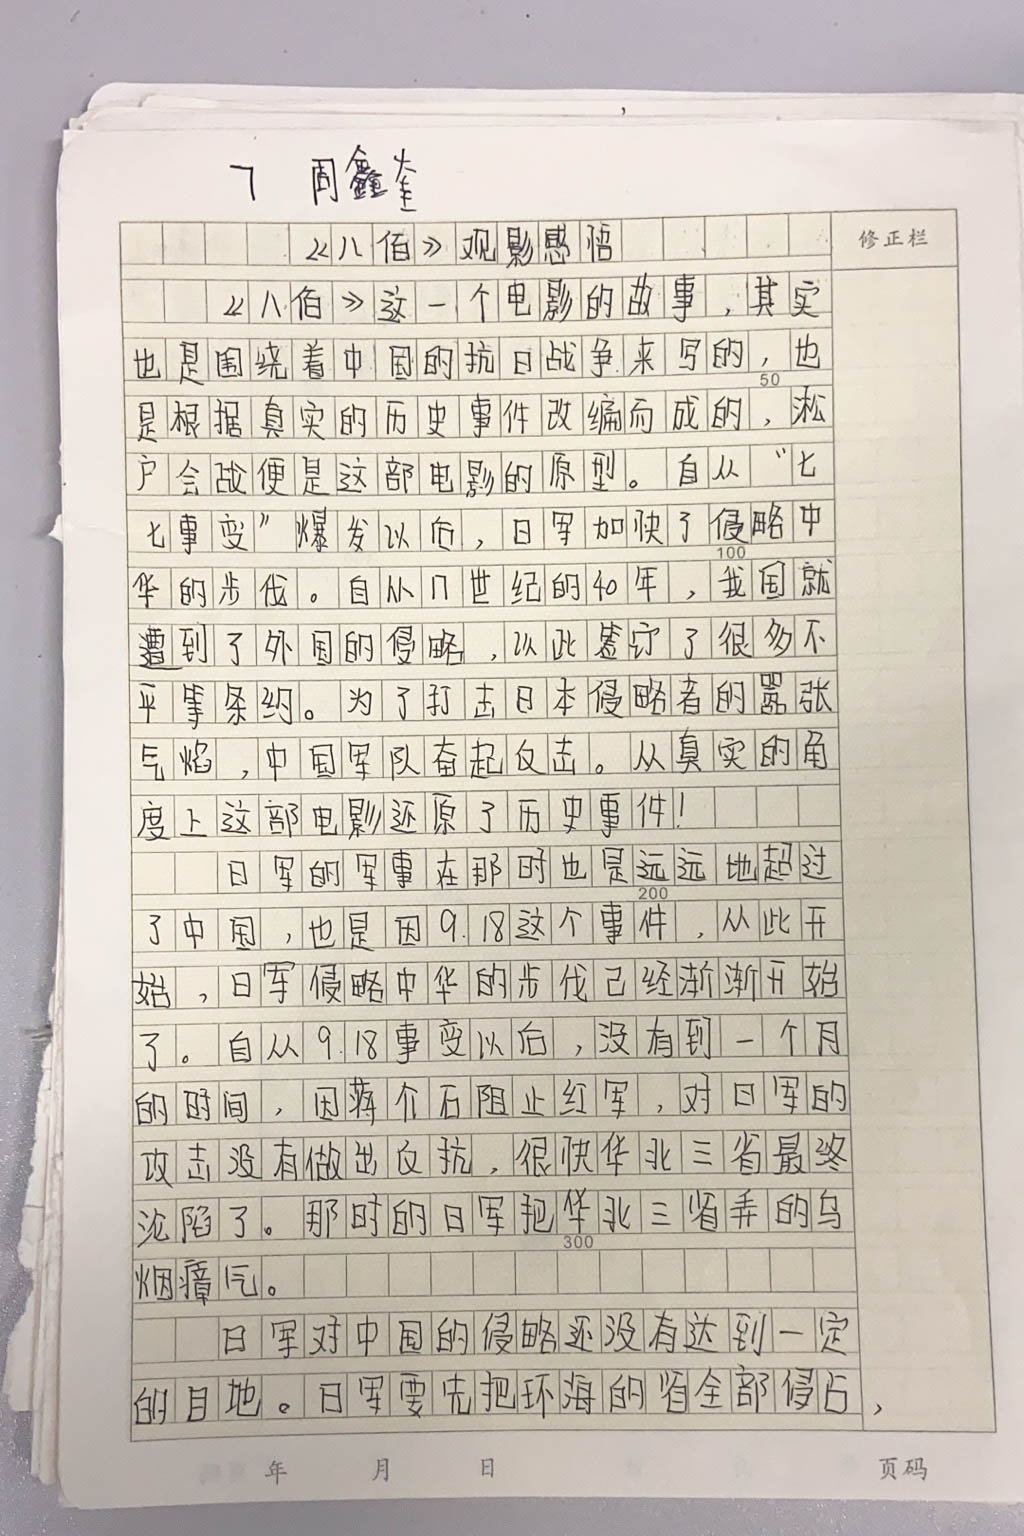 7 周鑫奎
《八佰》观影感悟
修正栏
《八佰》这一个电影的故事,其实
也是围绕着中国的抗日战争来写的,也
50
是根据真实的历史事件改编而成的,淞
户会战便是这部电影的原型。自从“七
七事变”爆发以后,日军加快了侵略中
100
华的步伐。自从17世纪的40年,我国就
遭到了外国的侵略,以此签订了很多不
平等条约。为了打击日本侵略者的嚣张
气焰,中国军队奋起反击。从真实的角
度上这部电影还原了历史事件!
日军的军事在那时也是远远地超过
200
了中国,也是因9.18这个事件,从此开
始,日军侵略中华的步伐已经渐渐开始
了。自从9.18事变以后,没有到一个月
的时间,因蒋介石阻止红军,对日军的
攻击没有做出反抗,很快华北三省最终
沦陷了。那时的日军把华北三省弄的乌
300
烟瘴气。
日军对中国的侵略还没有达到一定
的目地。日军要先把环海的省全部侵占,
年 月 日 页码